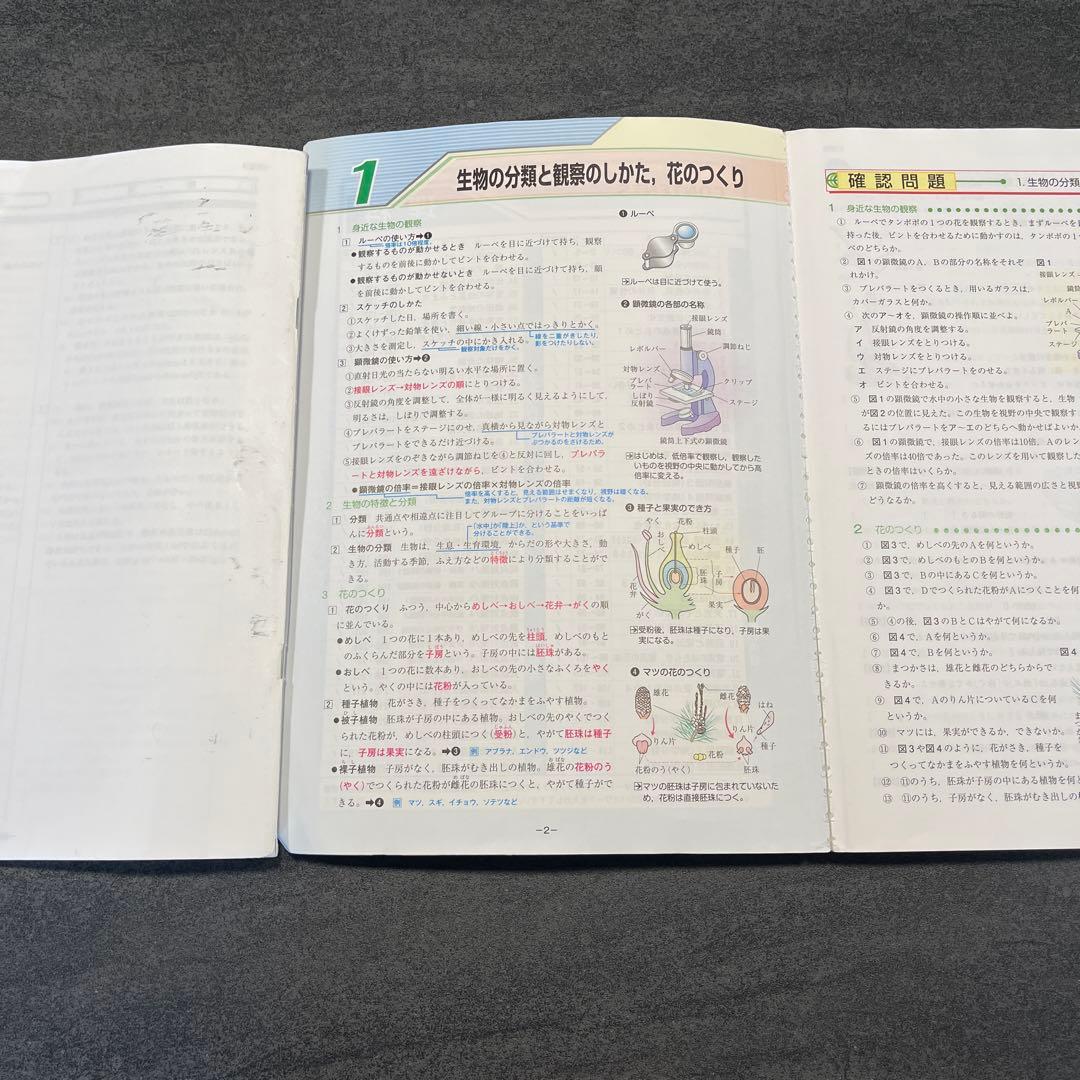 1
生物の分類と観察のしかた，花のつくり
1 身近な生物の観察
1 ルーペの使い方➡❶
倍率は10倍程度。
●観察するものが動かせるとき ルーペを目に近づけて持ち，観察
するものを前後に動かしてピントを合わせる。
●観察するものが動かせないとき ルーペを目に近づけて持ち，顔
を前後に動かしてピントを合わせる。
2 スケッチのしかた
①スケッチした日，場所を書く。
②よくけずった鉛筆を使い，細い線・小さい点ではっきりとかく。
線を二重がきしたり，
影をつけたりしない。
③大きさを測定し，スケッチの中にかき入れる。
観察対象だけをかく。
3 顕微鏡の使い方➡❷
①直射日光の当たらない明るい水平な場所に置く。
②接眼レンズ→対物レンズの順にとりつける。
③反射鏡の角度を調整して，全体が一様に明るく見えるようにして，
明るさは，しぼりで調整する。
④プレパラートをステージにのせ，真横から見ながら対物レンズと
プレパラートをできるだけ近づける。
プレパラートと対物レンズが
ぶつかるのをさけるため。
⑤接眼レンズをのぞきながら調節ねじを④と反対に回し，プレパラ
ートと対物レンズを遠ざけながら，ピントを合わせる。
●顕微鏡の倍率＝接眼レンズの倍率×対物レンズの倍率
倍率を高くすると，見える範囲はせまくなり，視野は暗くなる。
また，対物レンズとプレパラートの距離が短くなる。
2 生物の特徴と分類
1 分類 共通点や相違点に注目してグループに分けることをいっぱ
んに分類という。
「水中」か「陸上」か，という基準で
分けることができる。
2 生物の分類 生物は，生息・生育環境，からだの形や大きさ，動
き方，活動する季節，ふえ方などの特徴により分類することがで
きる。
3 花のつくり
1 花のつくり ふつう，中心からめしべ→おしべ→花弁→がくの順
に並んでいる。
●めしべ １つの花に１本あり，めしべの先を柱頭，めしべのもと
のふくらんだ部分を子房という。子房の中には胚珠がある。
●おしべ １つの花に数本あり，おしべの先の小さなふくろをやく
という。やくの中には花粉が入っている。
2 種子植物 花がさき，種子をつくってなかまをふやす植物。
●被子植物 胚珠が子房の中にある植物。おしべの先のやくでつく
られた花粉が，めしべの柱頭につく(受粉)と，やがて胚珠は種子
に，子房は果実になる。➡❸ 例 アブラナ，エンドウ，ツツジなど
●裸子植物 子房がなく，胚珠がむき出しの植物。雄花の花粉のう
(やく)でつくられた花粉が雌花の胚珠につくと，やがて種子がで
きる。➡❹ 例 マツ，スギ，イチョウ，ソテツなど
❶ ルーペ
ルーペは目に近づけて使う。
❷ 顕微鏡の各部の名称
接眼レンズ
鏡筒
レボルバー
調節ねじ
対物レンズ
プレパラート
クリップ
しぼり
反射鏡
ステージ
鏡筒上下式の顕微鏡
はじめは，低倍率で観察し，観察した
いものを視野の中央に動かしてから高
倍率に変える。
❸ 種子と果実のでき方
やく
花粉
柱頭
おしべ
めしべ
種子
胚
胚珠
子房
花弁
果実
がく
受粉後，胚珠は種子になり，子房は果
実になる。
❹ マツの花のつくり
雄花
雌花
はね
りん片
りん片
種子
花粉
花粉のう(やく)
胚珠
マツの胚珠は子房に包まれていないた
め，花粉は直接胚珠につく。
−2−
確認問題
1. 生物の分類
1 身近な生物の観察
① ルーペでタンポポの１つの花を観察するとき，まずルーペを
持った後，ピントを合わせるために動かすのは，タンポポの１
ベのどちらか。
② 図１の顕微鏡のA，Bの部分の名称をそれぞ
れかけ。
③ プレパラートをつくるとき，用いるガラスは，
カバーガラスと何か。
④ 次のア〜オを，顕微鏡の操作順に並べよ。
ア 反射鏡の角度を調整する。
イ 接眼レンズをとりつける。
ウ 対物レンズをとりつける。
エ ステージにプレパラートをのせる。
オ ピントを合わせる。
図1
接眼レンズ
鏡筒
レボル
A
プレパ
ラート
ステージ
⑤ 図１の顕微鏡で水中の小さな生物を観察すると，生物
が図２の位置に見えた。この生物を視野の中央で観察す
るにはプレパラートをア〜エのどちらへ動かせばよいか。
⑥ 図１の顕微鏡で，接眼レンズの倍率は10倍，Aのレン
ズの倍率は40倍であった。このレンズを用いて観察した
ときの倍率はいくらか。
⑦ 顕微鏡の倍率を高くすると，見える範囲の広さと視
どうなるか。
2 花のつくり
① 図３で，めしべの先のAを何というか。
② 図３で，めしべのもとのBを何というか。
③ 図３で，Bの中にあるCを何というか。
④ 図３で，Dでつくられた花粉がAにつくことを何
か。
⑤ ④の後，図３のBとCはやがて何になるか。
⑥ 図４で，Aを何というか。
⑦ 図４で，Bを何というか。
図4
⑧ まつかさは，雄花と雌花のどちらからで
きるか。
⑨ 図４で，Aのりん片についているCを何
というか。
⑩ マツには，果実ができるか，できないか。
⑪ 図３や図４のように，花がさき，種子を
つくってなかまをふやす植物を何というか。
⑫ ⑪のうち，胚珠が子房の中にある植物を何と
⑬ ⑪のうち，子房がなく，胚珠がむき出しの